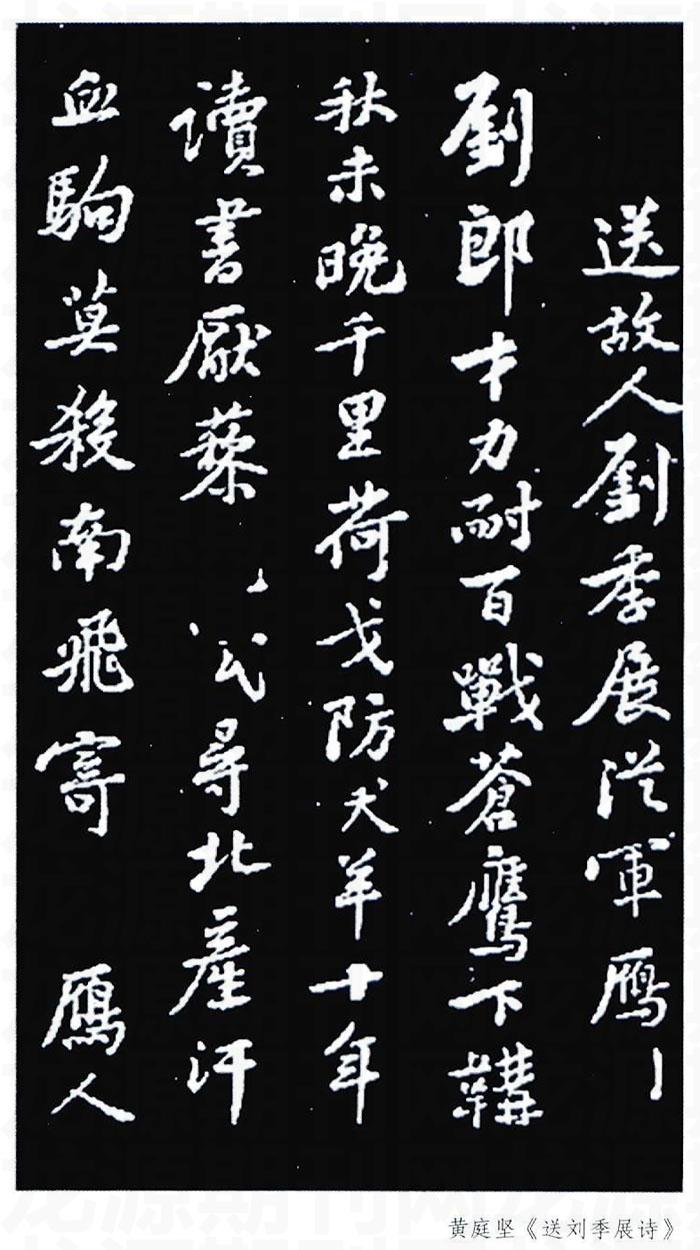 送故人劉季展從軍鴈
劉郎才力耐百戰蒼鷹下韝
秋未晚千里荷戈防犬羊十年
讀書厭藜
尋北產汗
血駒莫殺南飛寄鴈人
黄庭坚《送刘季展诗》